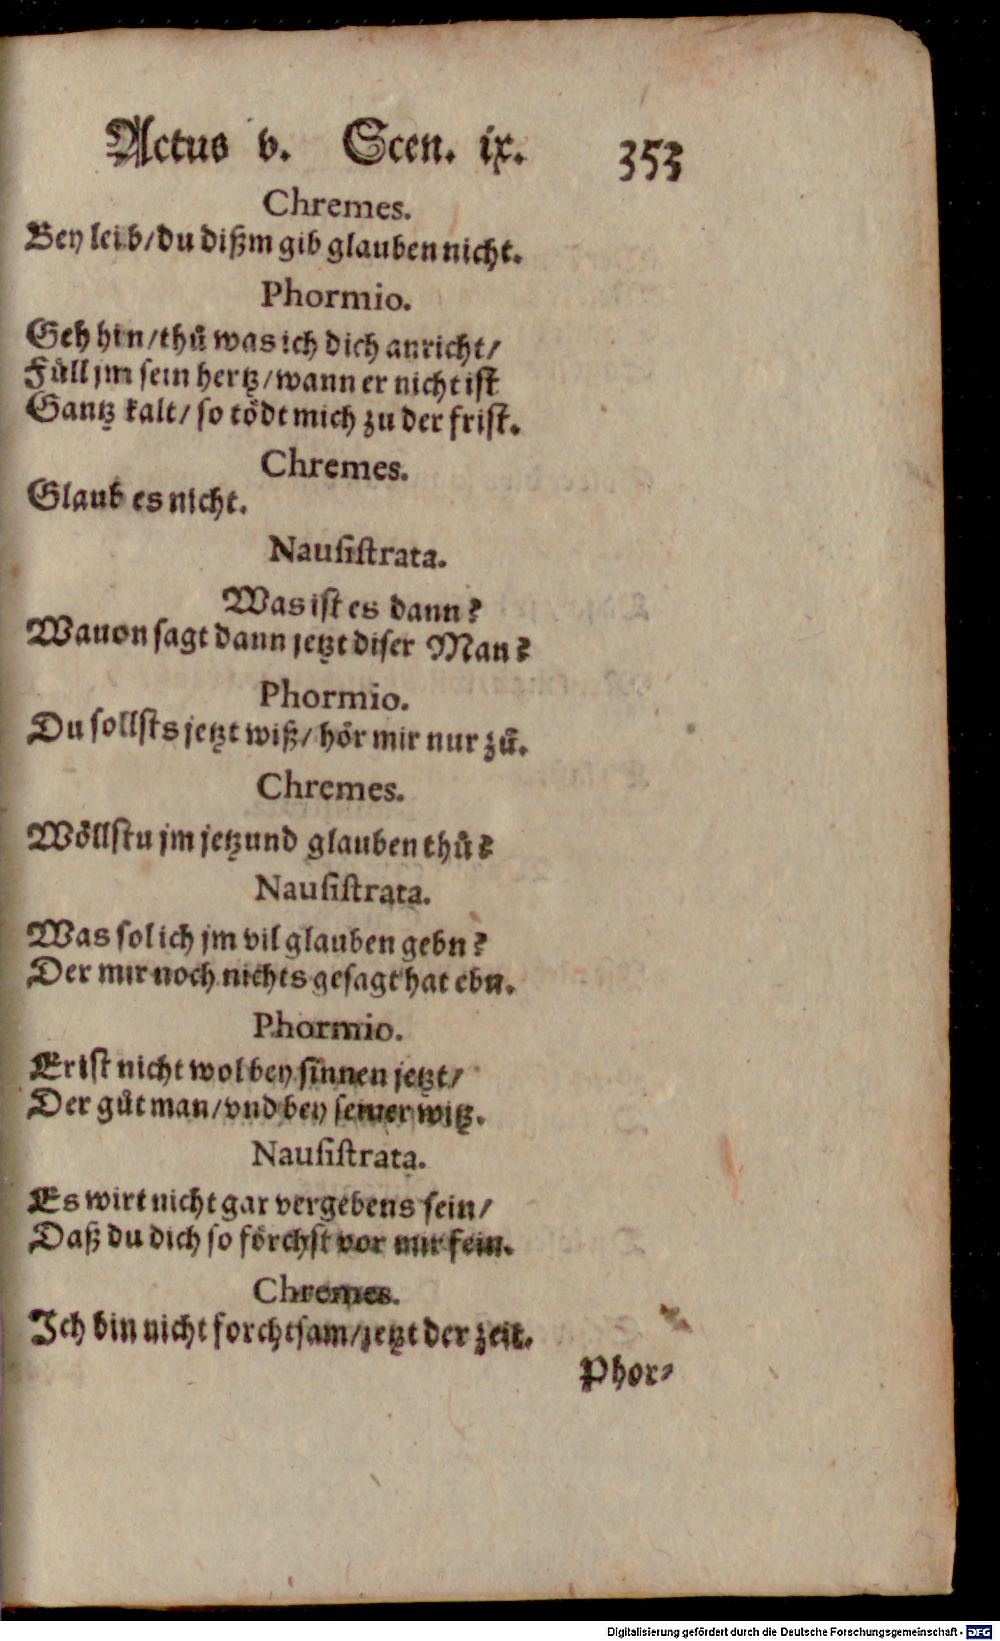 Actus v. Scen. ix. 353
Chremes.
Bey leib/du dißm gib glauben nicht.
Phormio.
Geh hin/thů was ich dich anricht/
Füll jm sein hertz/wann er nicht ist
Gantz kalt/so tödt mich zu der frist.
Chremes.
Glaub es nicht.
Nausistrata.
Was ist es dann?
Wauon sagt dann jetzt diser Man?
Phormio.
Du sollsts jetzt wiß/hör mir nur zů.
Chremes.
Wöllstu jm jetzund glauben thů?
Nausistrata.
Was sol ich jm vil glauben gebn?
Der mir noch nichts gesagt hat ebn.
Phormio.
Er ist nicht wol bey sinnen jetzt/
Der gůt man/vnd bey seiner witz.
Nausistrata.
Es wirt nicht gar vergebens sein/
Daß du dich so förchst vor mir fein.
Chremes.
Ich bin nicht forchtsam/jetzt der zeit.
Phor-
Digitalisierung gefördert durch die Deutsche Forschungsgemeinschaft - DFG